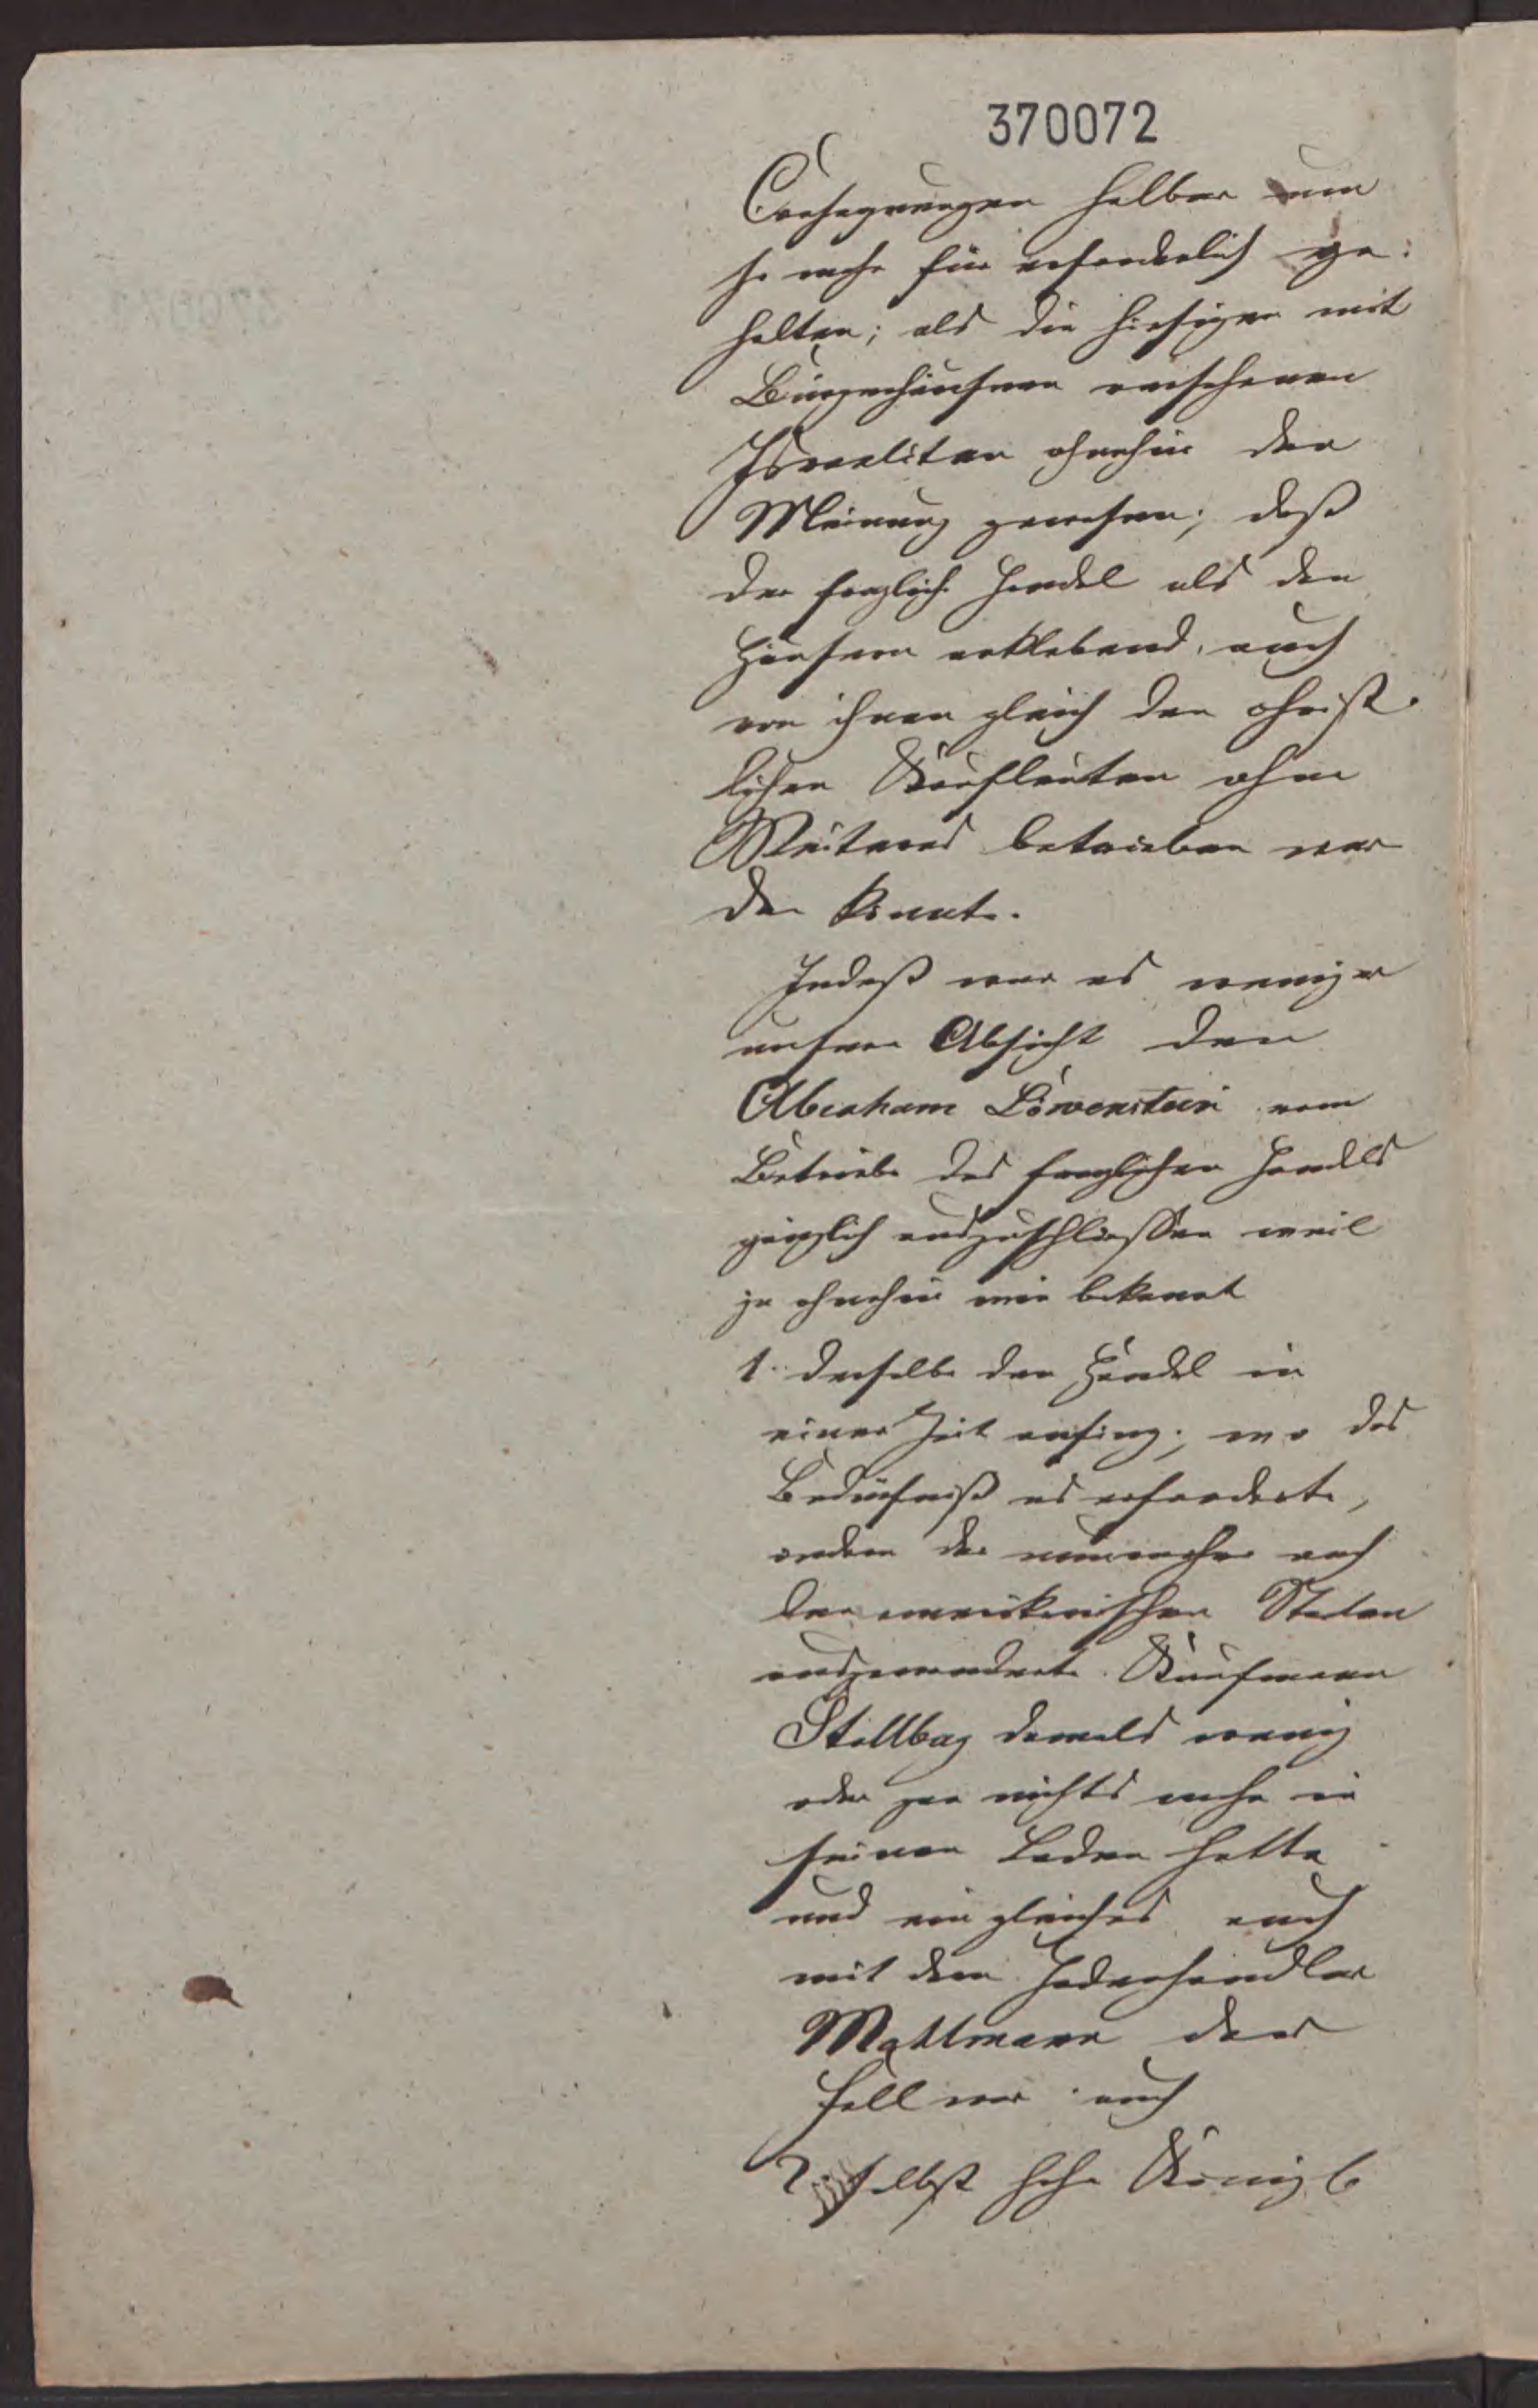 370072
Consequenzen halber um
so mehr für erforderlich ge-
halten; als die hiesigen mit
Bürgerhäusern versehenen
Israeliten ohnehin der
Meinung gewesen; daß
der fragliche Handel als den
Häusern anklebend, auch
von ihnen gleich den christ-
lichen Kaufleuten ohne
Weiteres betrieben wer
den könnte.
Indeß war es weniger
unsere Absicht den
Abraham Löwenstein vom
Betriebe des fraglichen Handels
gänzlich auszuschließen weil
ja ohnehin wie bekannt
1. derselbe den Handel in
einer Zeit anfing; wo das
Bedürfniß es erforderte,
indem der nunmehr nach
den amerikanischen Staaten
ausgewanderte Kaufmann
Stallbag damals wenig
oder gar nichts mehr in
seinem Laden hatte
und ein gleiches auch
mit dem
Mattmann der
Fall war auch
2. selbst hohe Königl